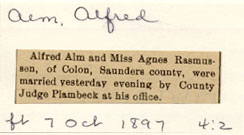 Alm, Alfred
Alfred Alm and Miss Agnes Rasmus-
sen, of Colon, Saunders county, were
married yesterday evening by County
Judge Plambeck at his office.
ft 7 Oct 1897 4:2